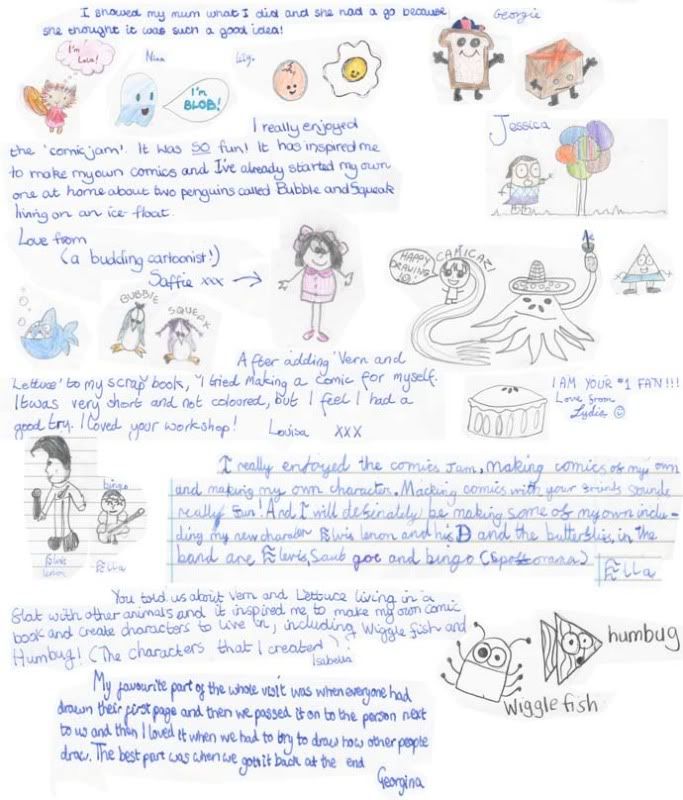 I showed my mum what I did and she had a go because
she thought it was such a good idea!
Georgie
I'm Lola!
Nina
I'm
BLOB!
I really enjoyed
the 'comic jam'. It was SO fun! It has inspired me
to make my own comics and I've already started my own
one at home about two penguins called Bubble and Squeak
living on an ice float.
Jessica
Love from
(a budding cartoonist!)
Saffie xxx
HAPPY
DRAWING
BUBBLE
SQUEAK
After adding 'Vern and
Lettuce' to my scrap book, I tried making a comic for myself.
It was very short and not coloured, but I feel I had a
good try. I loved your workshop!
Louisa XXX
I AM YOUR #1 FAN!!!
Love from
Lydia
bingo
Elvis
lenon
Ella
I really enjoyed the comics Jam, making comics of my own
and making my own character. Macking comics with your
really fun! And I will definately be making some of my own inclu-
ding my new charater Elvis lenon and his D and the butterflies, in the
band are Elevis, and bingo
Ella
You told us about Vern and Lettuce living in a
flat with other animals and it inspired me to make my own comic
book and create characters to live in, including Wiggle fish and
Humbug! (The characters that I created)
Isabella
humbug
Wiggle fish
My favourite part of the whole visit was when everyone had
drawn their first page and then we passed it on to the person next
to us and then I loved it when we had to try to draw how other people
draw. The best part was when we got it back at the end
Georgina